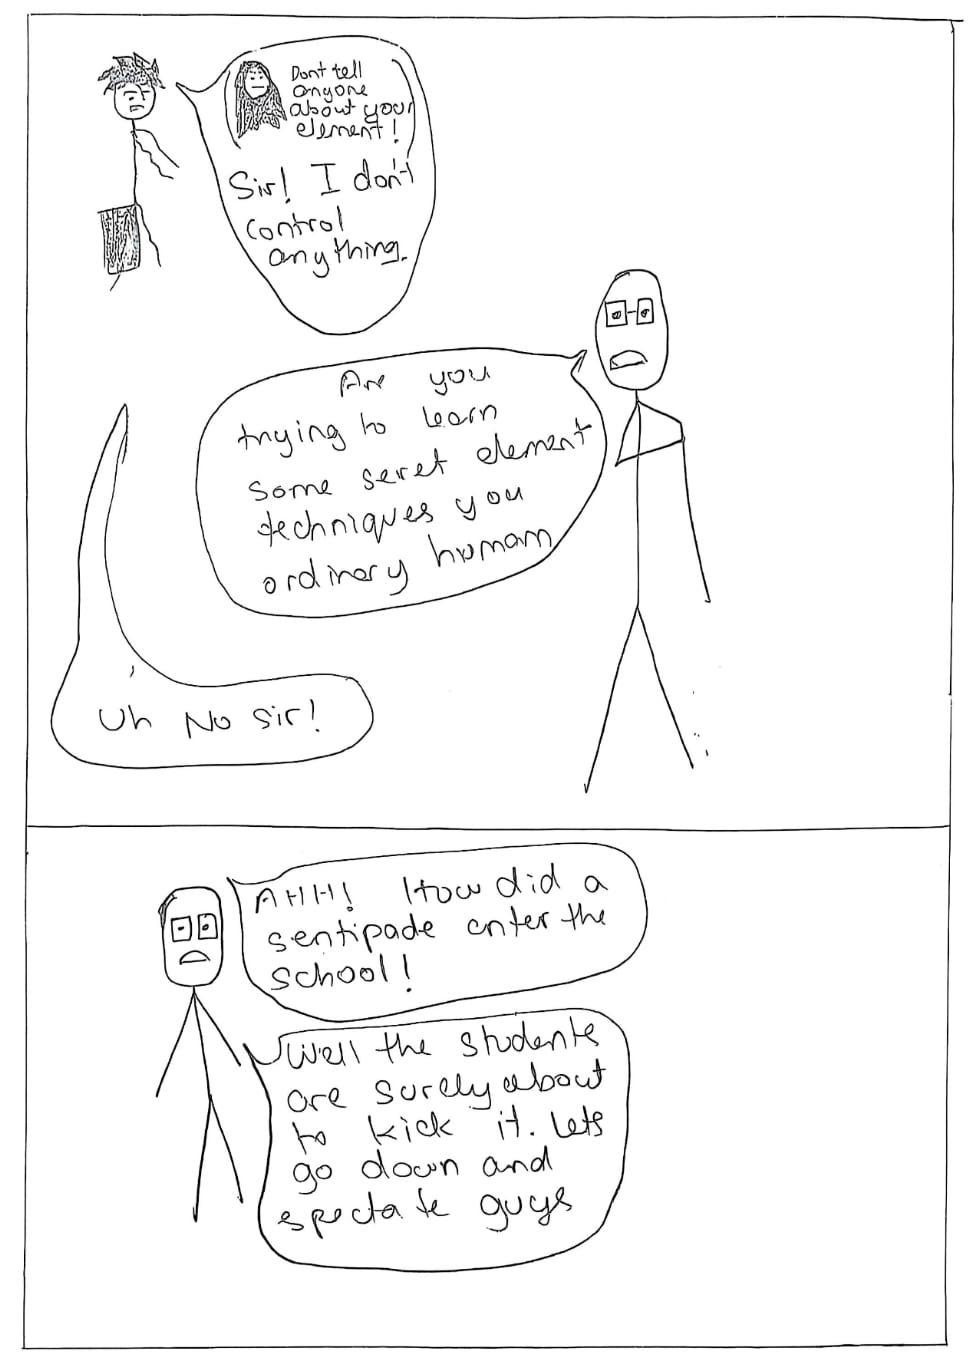 Dont tell
anyone
about your
element!
Sir! I don't
control
anything.
Are you
trying to learn
some seret element
techniques you
ordinary human
Uh No sir!
AHH! How did a
sentipade enter the
school!
Well the students
are surely about
to kick it. Lets
go down and
spectate guys